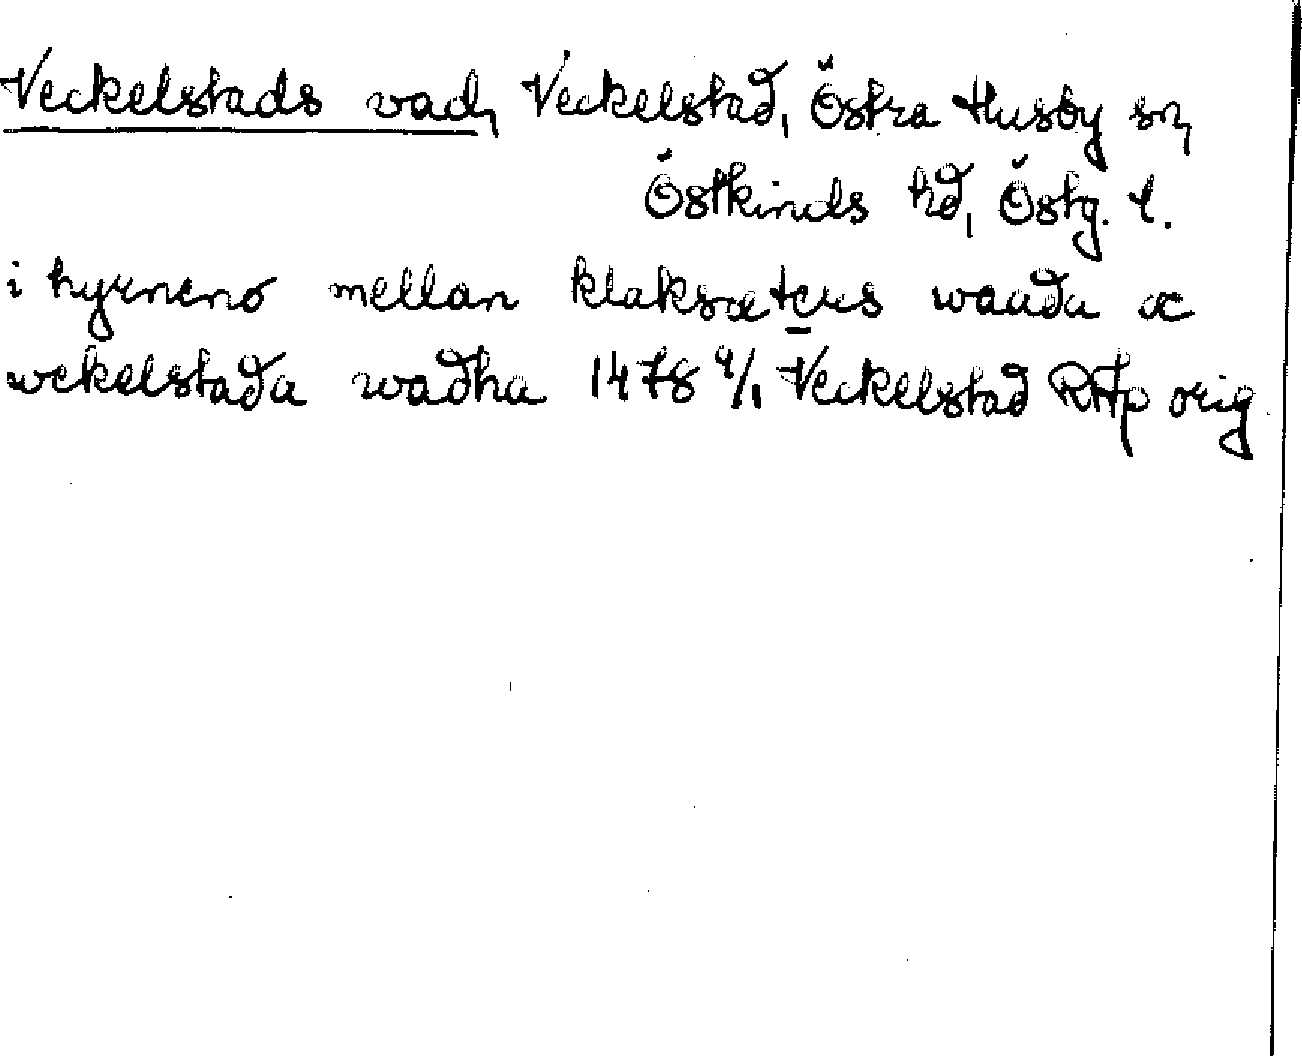 Veckelstads vad, Veckelstad, Östra Husby sn,
Östkinds hd, Östg. l.
i hyrneno mellan klaksæters waada æ
wekelstada wadha 1478 9/1 Veckelstad RAp orig